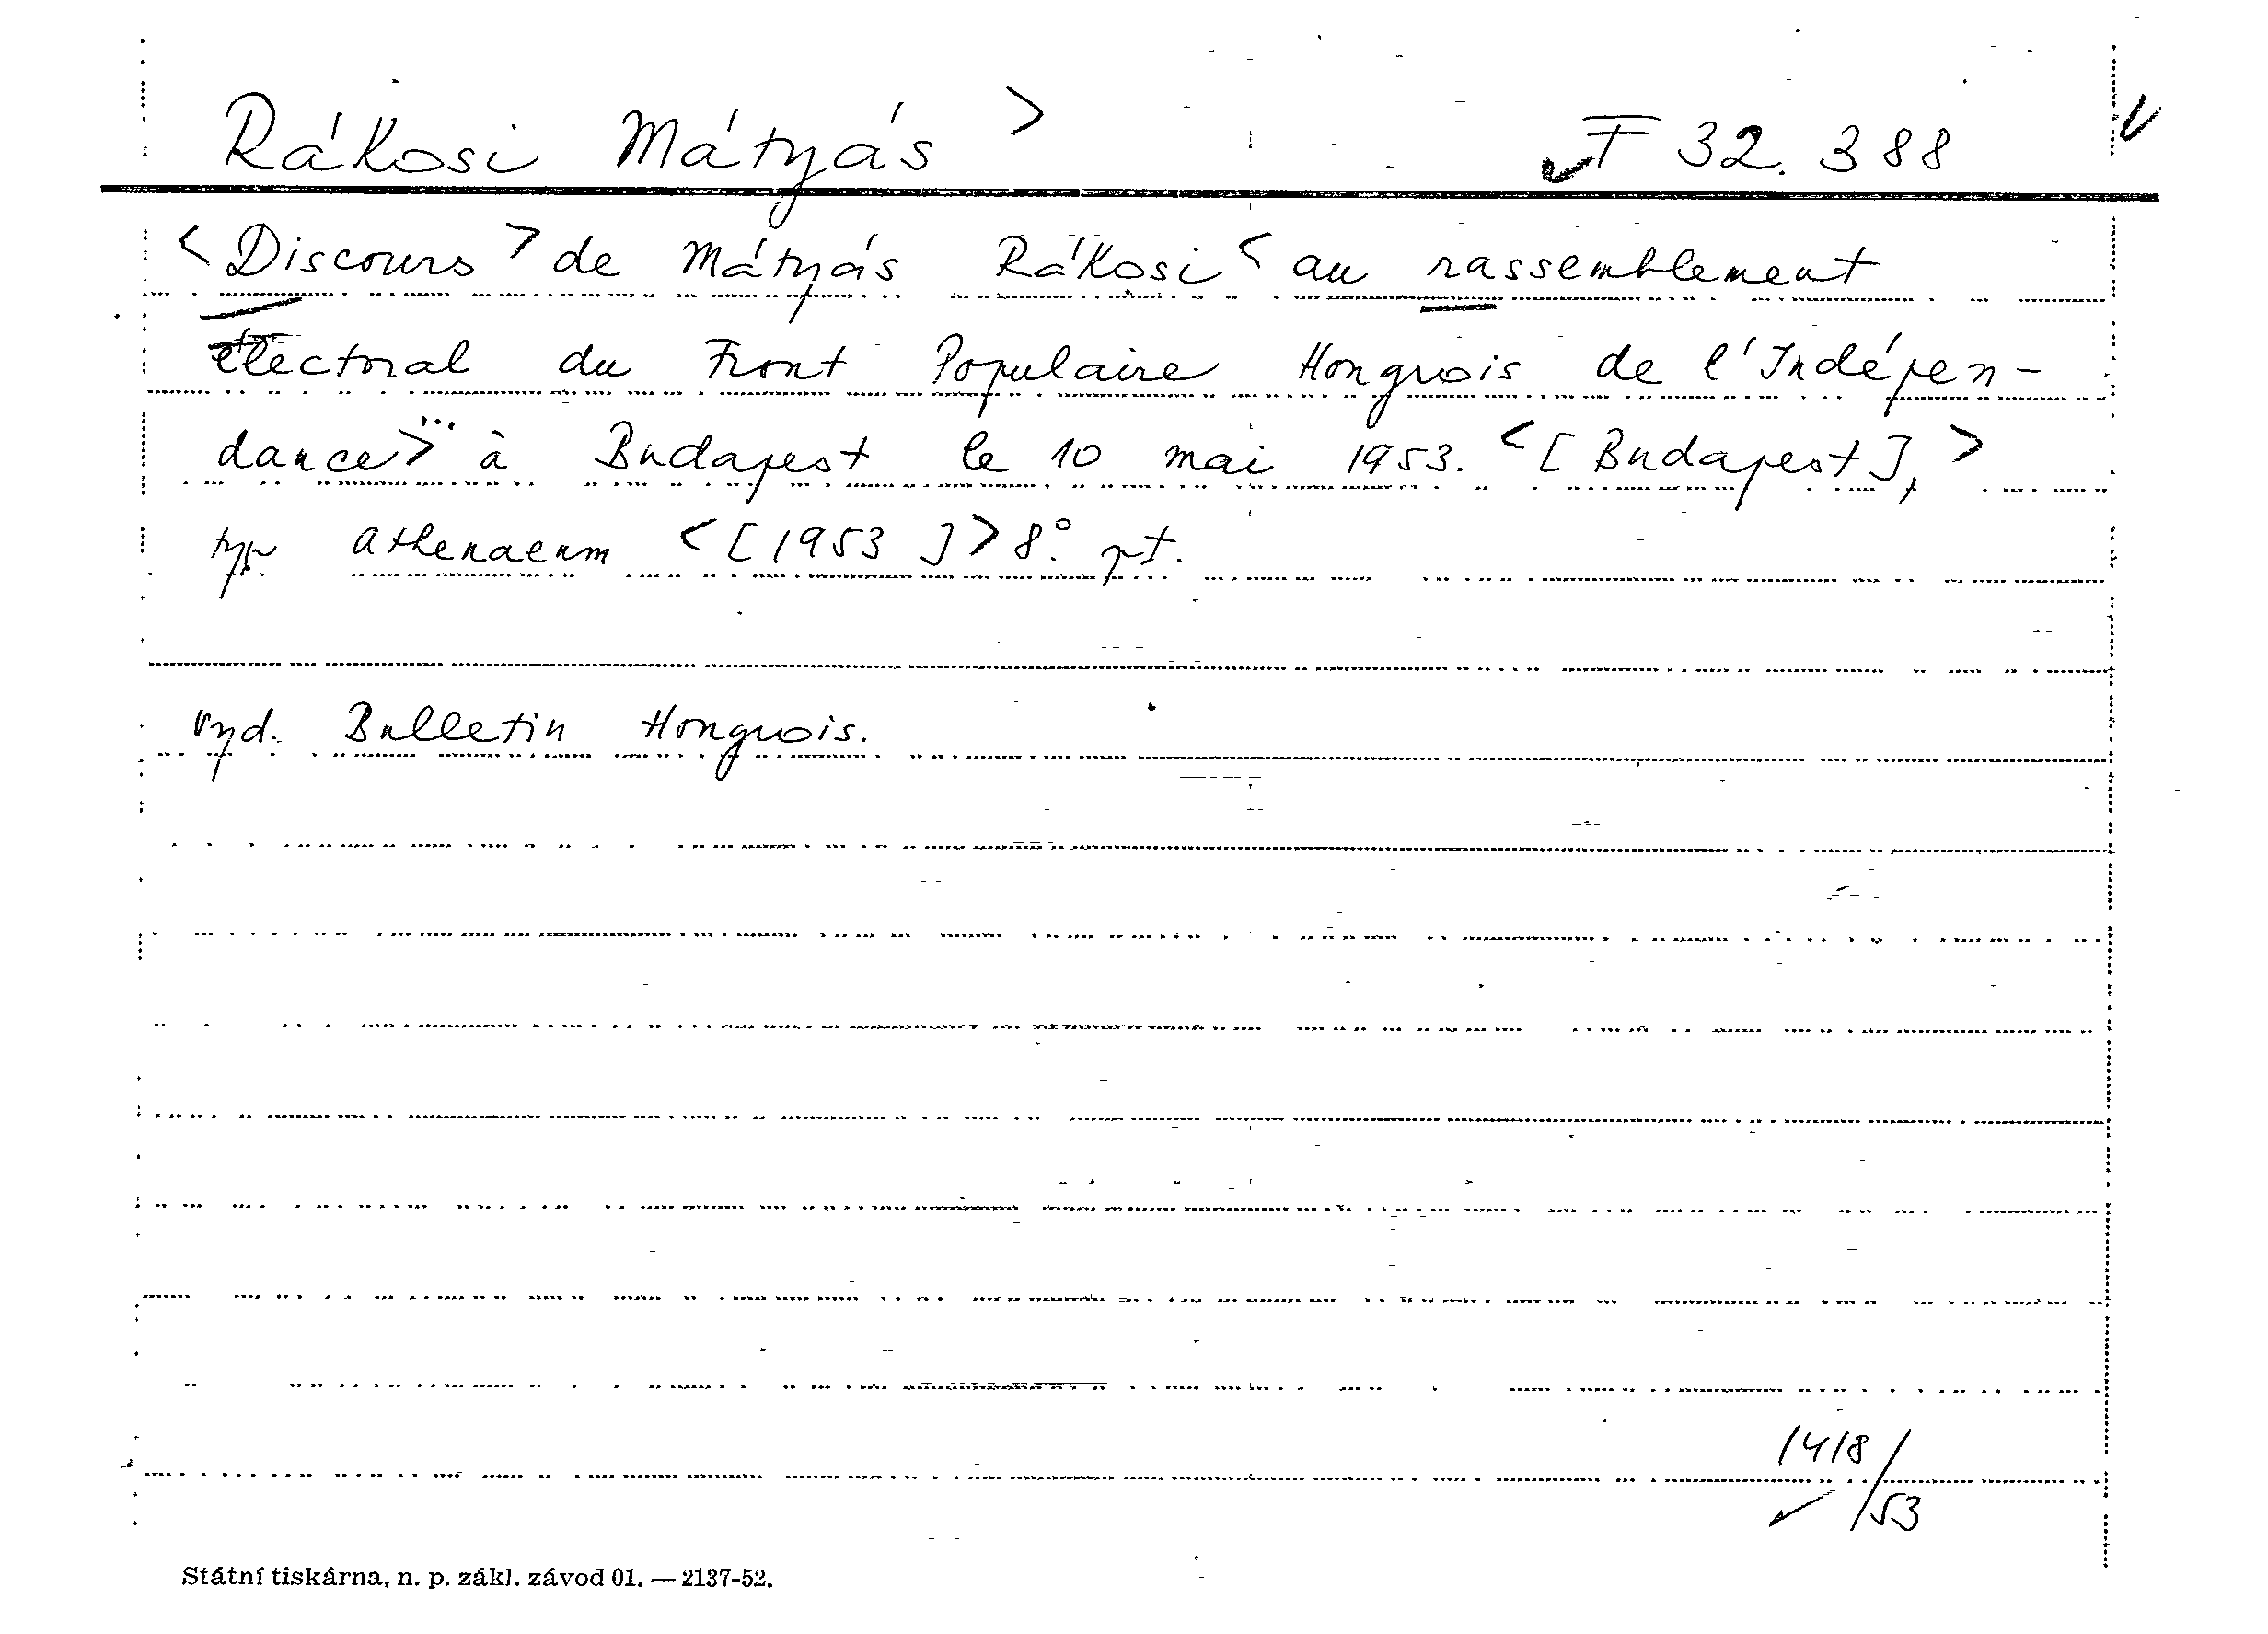 Rákosi Mátyás > F 32.388
<Discours> de Mátyás Rákosi <au rassemblement
électoral du Front Populaire Hongrois de l'Indépen-
dance>... à Budapest le 10 mai 1953. <[Budapest],>
typ Athenaeum <[1953]> 8°. pt.
Vyd. Bulletin Hongrois.
1418/53
Státní tiskárna, n. p. zákl. závod 01. — 2137-52.